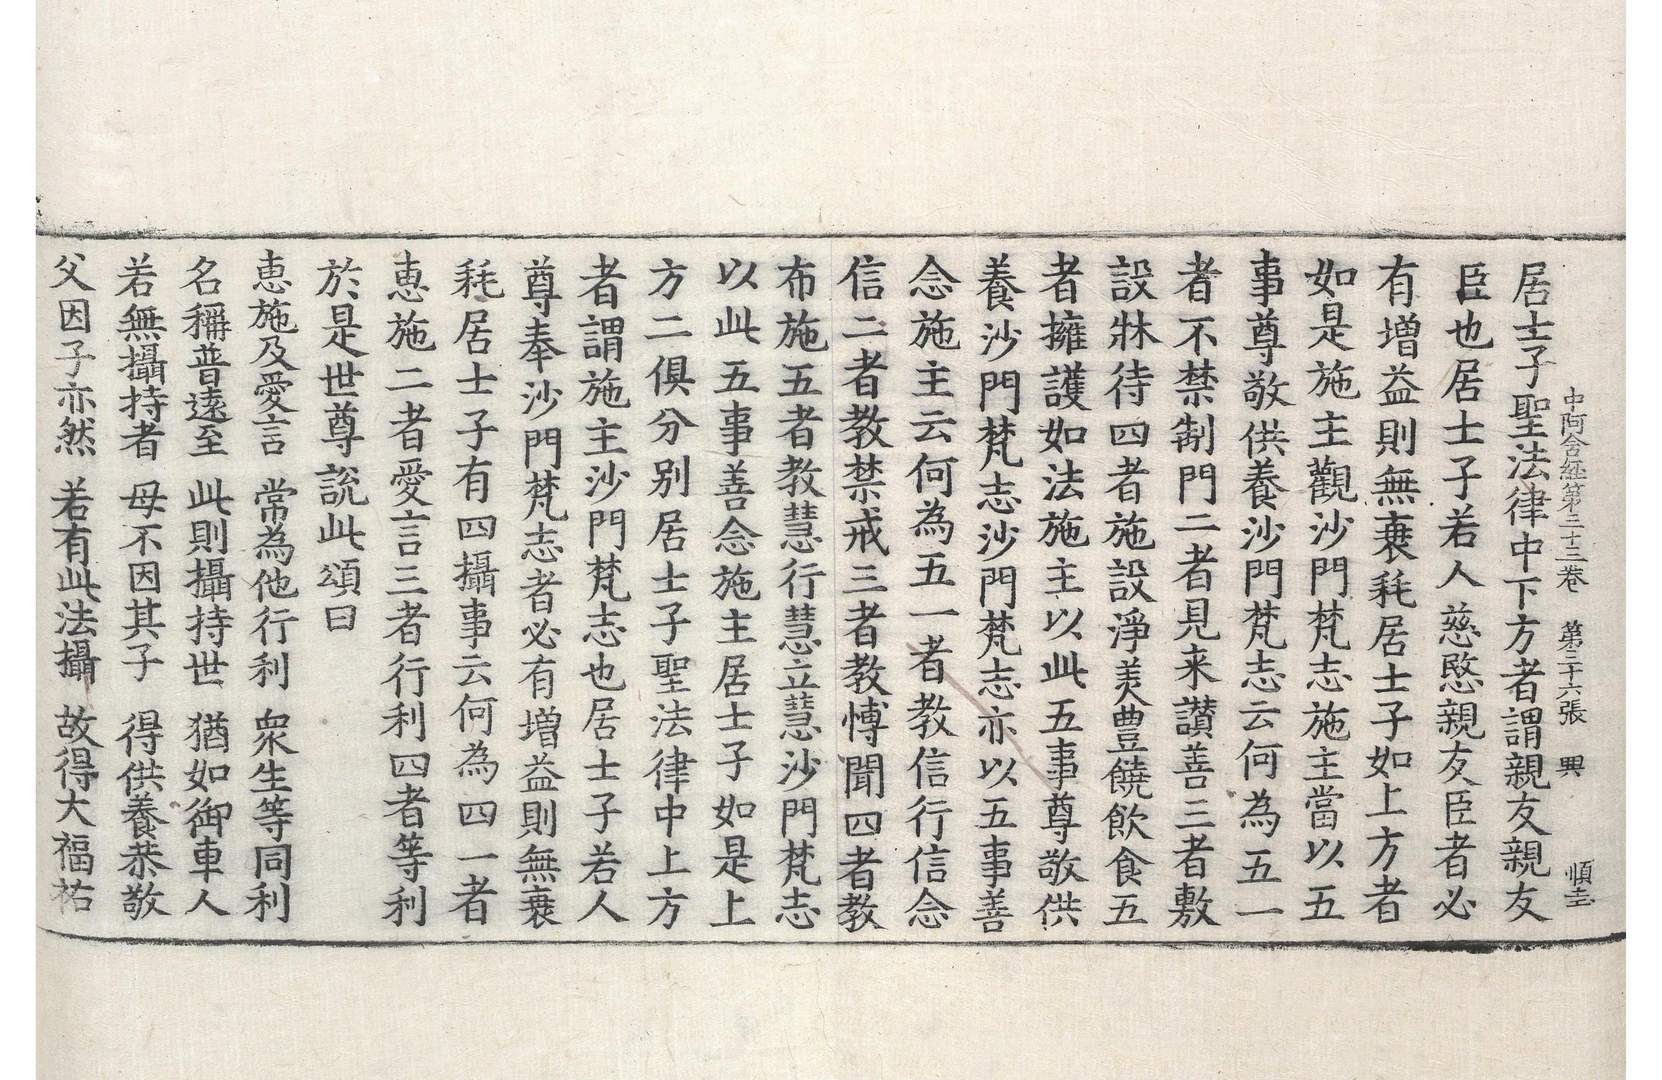 中阿含經第三十三卷　第三十六張　興　順圭
居士子聖法律中下方者謂親友親友
臣也居士子若人慈愍親友臣者必
有增益則無衰耗居士子如上方者
如是施主觀沙門梵志施主當以五
事尊敬供養沙門梵志云何為五一
者不禁制門二者見来讃善三者敷
設牀待四者施設淨美豊饒飲食五
者擁護如法施主以此五事尊敬供
養沙門梵志沙門梵志亦以五事善
念施主云何為五一者教信行信念
信二者教禁戒三者教愽聞四者教
布施五者教慧行慧立慧沙門梵志
以此五事善念施主居士子如是上
方二俱分別居士子聖法律中上方
者謂施主沙門梵志也居士子若人
尊奉沙門梵志者必有增益則無衰
耗居士子有四攝事云何為四一者
惠施二者愛言三者行利四者等利
於是世尊說此頌曰
惠施及愛言　常為他行利　衆生等同利
名稱普遠至　此則攝持世　猶如御車人
若無攝持者　母不因其子　得供養恭敬
父因子亦然　若有此法攝　故得大福祐